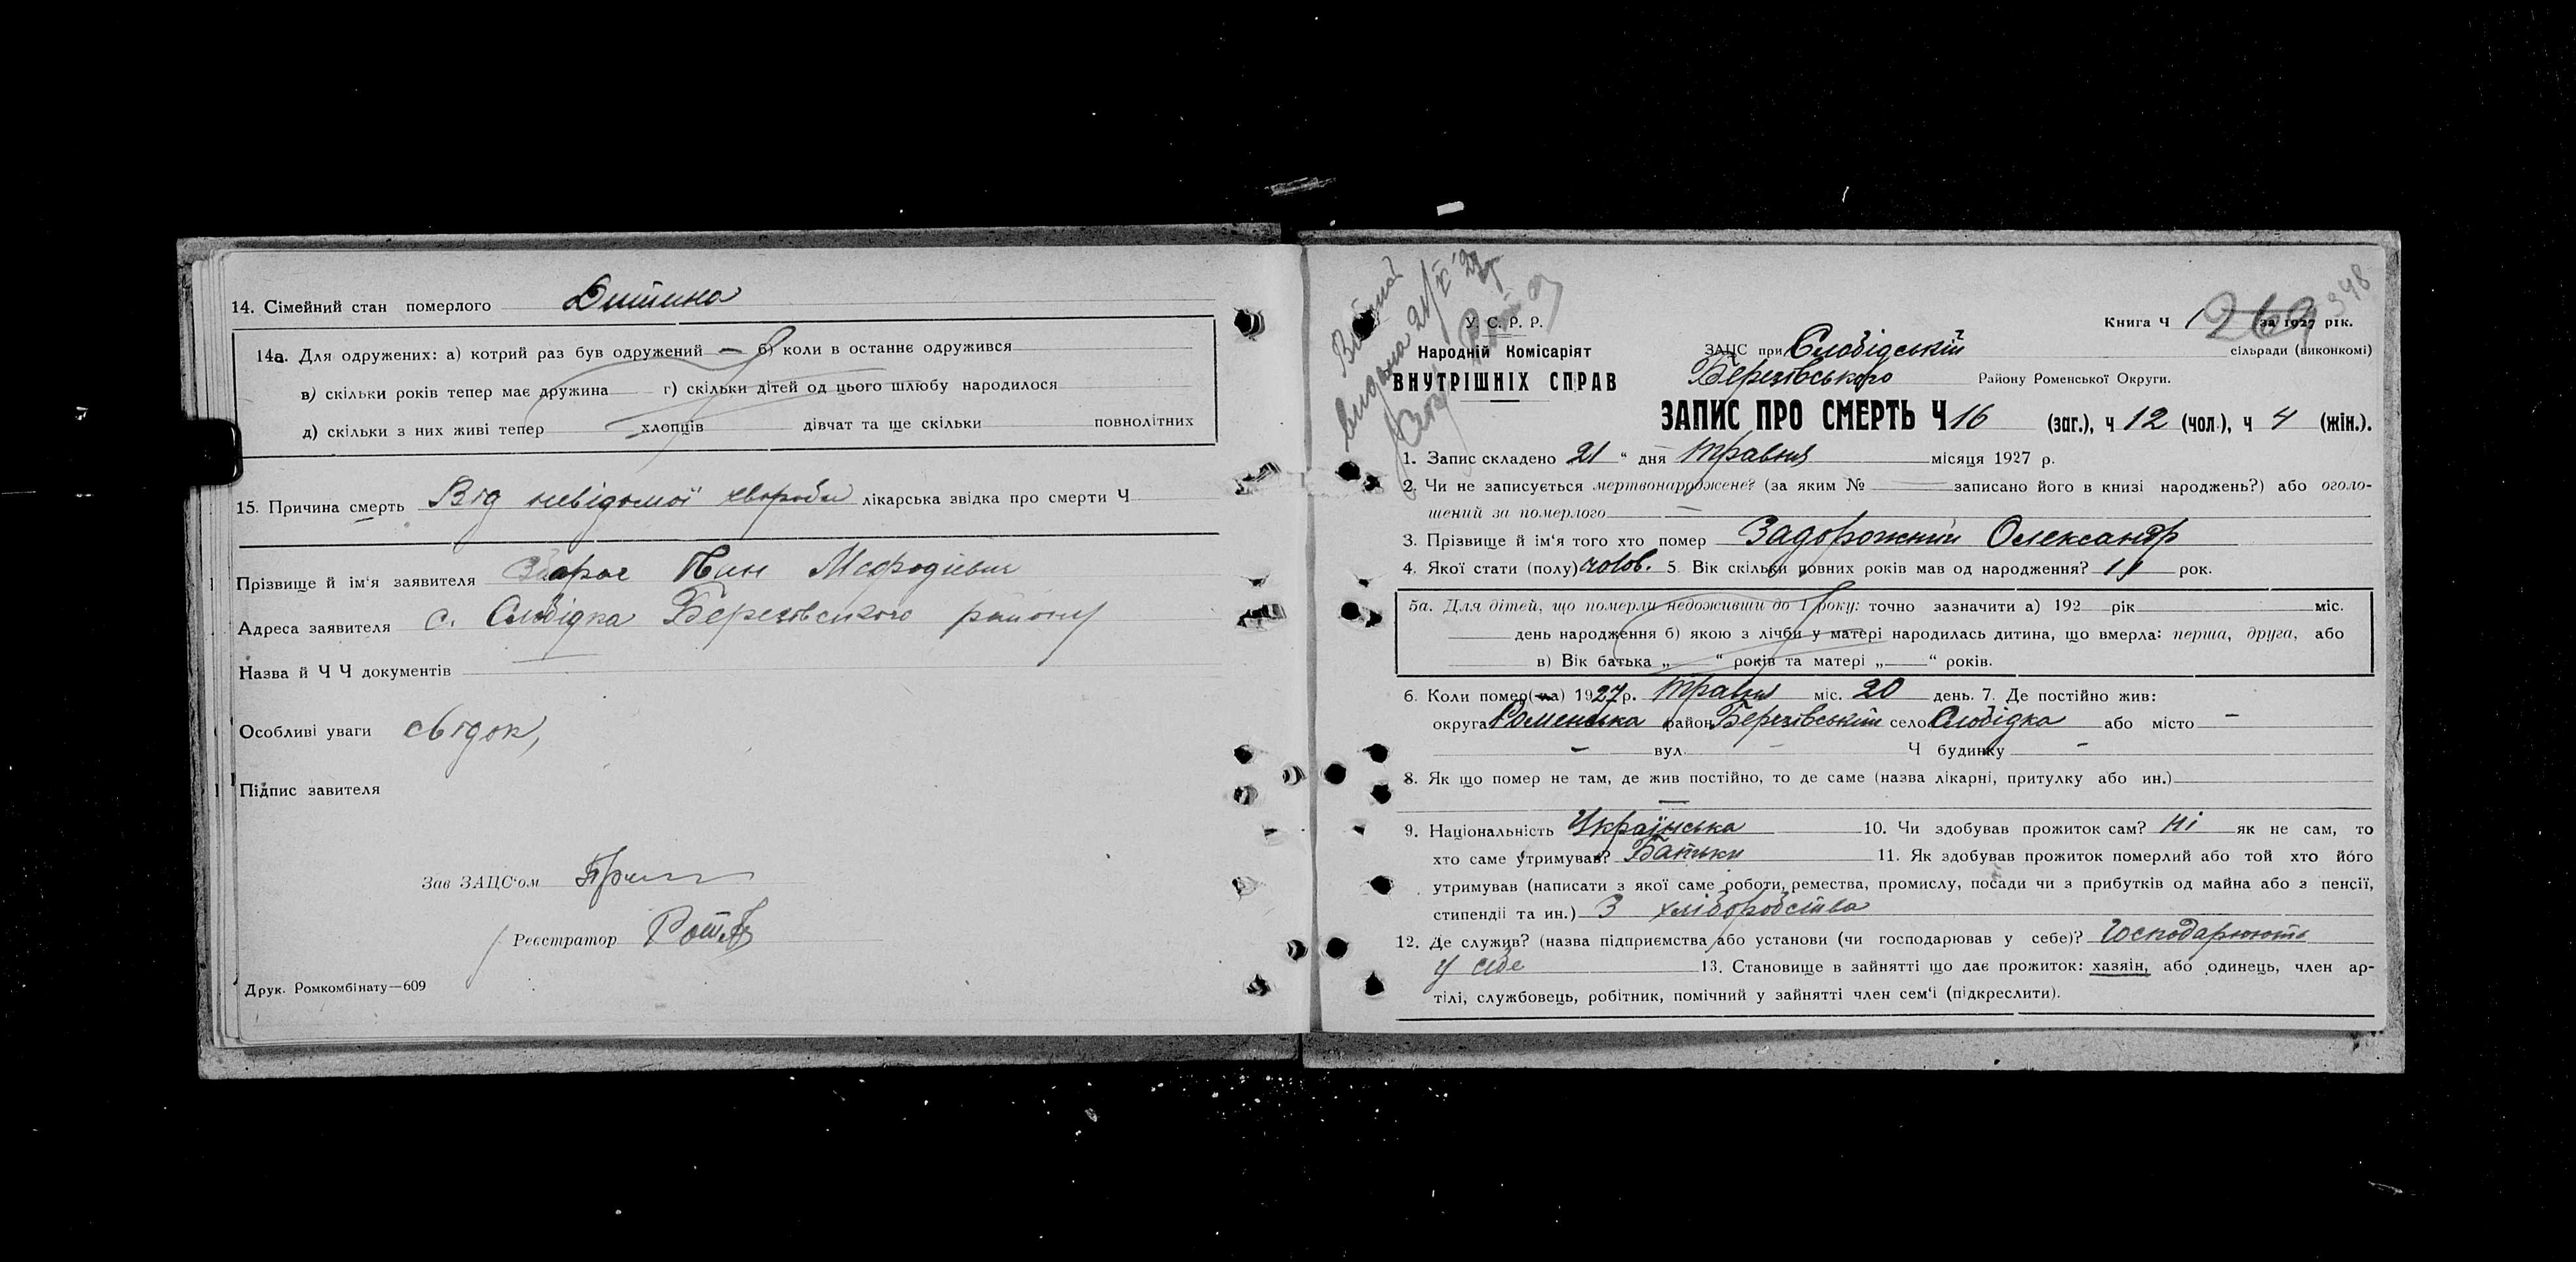 14. Сімейний стан померлого Дитина
14а. Для одружених: а) котрий раз був одружений — б) коли в останнє одружився
в) скільки років тепер має дружина г) скільки дітей од цього шлюбу народилося
д) скільки з них живі тепер хлопців дівчат та ще скільки повнолітних
15. Причина смерть Від невідомої хвороби лікарська звідка про смерти Ч
Прізвище й ім'я заявителя Мефодієвич
Адреса заявителя с. Слобідка Березовського району
Назва й Ч Ч документів
Особливі уваги свідок,
Підпис завителя
Зав ЗАЦС'ом
Реєстратор
Друк. Ромкомбінату—609
348
269
Книга Ч 1 за 1927 рік.
У. С. Р. Р.
Народній Комісаріят
ВНУТРІШНІХ СПРАВ
ЗАЦС при Слобідській сільради (виконкомі)
Березівського Району Роменської Округи.
ЗАПИС ПРО СМЕРТЬ Ч 16 (заг.), ч 12 (чол.), ч 4 (жін.).
1. Запис складено „21" дня Травня місяця 1927 р.
2. Чи не записується мертвонароджене? (за яким № записано його в книзі народжень?) або оголо-
шений за померлого —
3. Прізвище й ім'я того хто помер Задорожний Олександр
4. Якої стати (полу) чолов. 5. Вік скільки повних років мав од народження? 11 рок.
5а. Для дітей, що померли недоживши до 1 року: точно зазначити а) 192 рік міс.
день народження б) якою з лічби у матері народилась дитина, що вмерла: перша, друга, або
в) Вік батька „ " років та матері „ " років.
6. Коли помер(ла) 1927 р. Травня міс. 20 день. 7. Де постійно жив:
округа Роменська район Березівський село Слобідка або місто —
— вул. — Ч будинку —
8. Як що помер не там, де жив постійно, то де саме (назва лікарні, притулку або ин.)
—
9. Національність Українська 10. Чи здобував прожиток сам? Ні як не сам, то
хто саме утримував? Батьки 11. Як здобував прожиток померлий або той хто його
утримував (написати з якої саме роботи, ремества, промислу, посади чи з прибутків од майна або з пенсії,
стипендії та ин.) З хліборобства
12. Де служив? (назва підприємства або установи (чи господарював у себе)? Господарюють
у себе 13. Становище в зайнятті що дає прожиток: хазяїн, або одинець, член ар-
тілі, службовець, робітник, помічний у зайнятті член сем'ї (підкреслити).